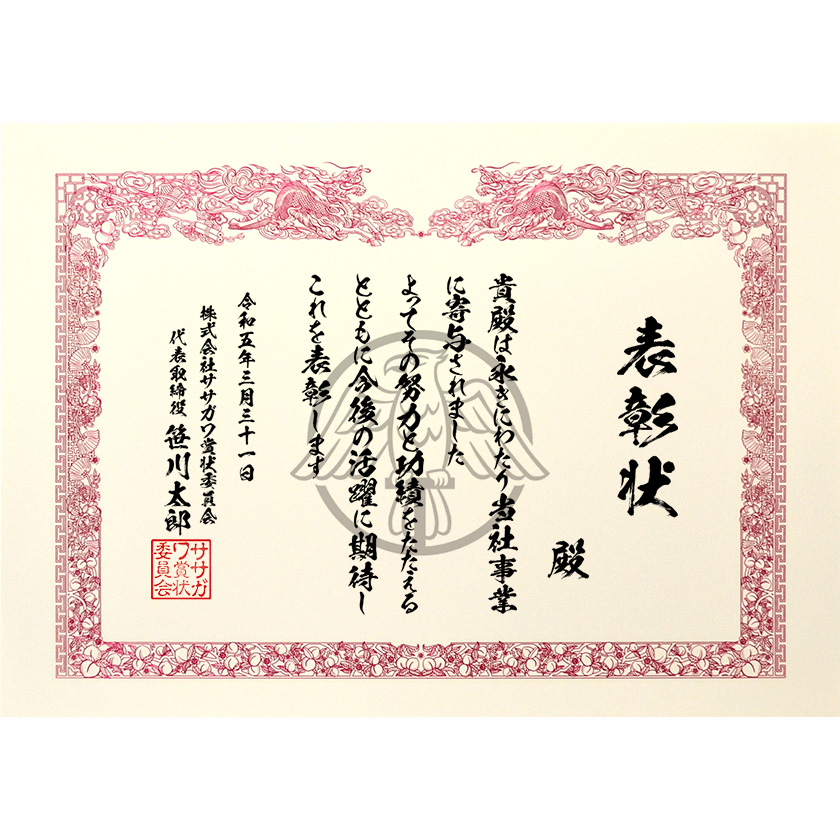 表彰状
殿
貴殿は永きにわたり当社事業
に寄与されました
よってその努力と功績をたたえる
とともに今後の活躍に期待し
これを表彰します
令和五年三月三十一日
株式会社ササガワ賞状委員会
代表取締役 笹川太郎
ササガ
ワ賞状
委員会